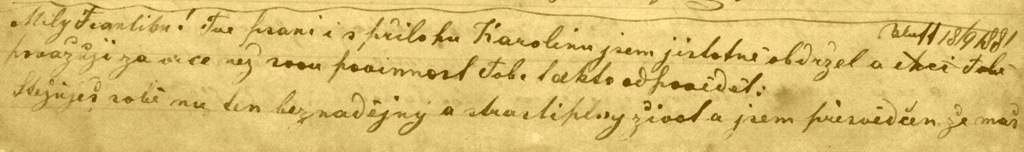 18/9 1881
Milý Františku! Tvé psaní i s příloku Karolinu jsem jistotně obdržel a chci Tobě
považuji za více než svou povinnost Tobě takto odpovědět:
Stěžuješ sobě na ten beznadějný a strastiplný život a jsem přesvědčen že máš